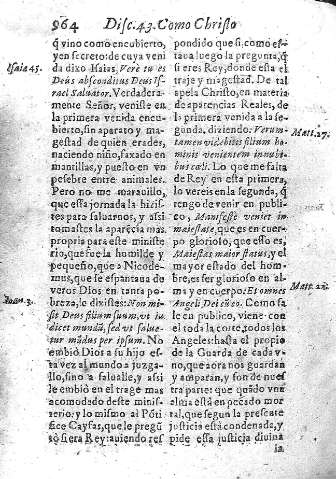 964 Disc. 43. Como Christo
q̃ vino como encubierto,
y en secreto: de cuya veni
da dixo Isaias, Vere tu es
Deus absconditus Deus Is-
rael Saluator. Verdadera-
mente Señor, veniste en
la primera venida encu-
bierto, sin aparato y ma-
gestad de quien erades,
naciendo niño, faxado en
mantillas, y puesto en vn
pesebre entre animales.
Pero no me marauillo,
que essa jornada la hizis-
tes para saluarnos, y assi
tomastes la aparẽcia mas
propria para este ministe
rio, que fue la humilde y
pequeña, que a Nicode-
mus, que se espantaua de
veros Dios en tanta po-
breza, le dixistes: Non mi-
sit Deus filium suum, vt iu-
dicet mundũ, sed vt salue-
tur mũdus per ipsum. No
embiò Dios a su hijo es-
ta vez al mundo a juzga-
llo, sino a salualle, y assi
le embiò en el trage mas
acomodado deste minis-
terio: y lo mismo al Põti
fice Cayfas, que le pregũ
tò si era Rey: auiendo res
Isaiæ 45.
Ioan. 3.
pondido que si, como es-
taua luego la pregunta, q̃
si eres Rey, donde està el
traje y magestad. De tal
apela Christo, en materia
de aparencias Reales, de
la primera venida a la se-
gunda, diziendo: Verum-
tamen videbitis filium ho-
minis venientem in nubi-
bus cœli. Lo que me falta
de Rey en esta primera,
lo vereis en la segunda, q̃
tengo de venir en publi-
co, Manifestè veniet in
maiestate, que es en cuer-
po glorioso, que esso es,
Maiestas maior status, y el
mayor estado del hom-
bre, es ser glorioso en al-
ma y en cuerpo: Et omnes
Angeli Dei cũ eo. Como sa-
le en publico, viene con
el toda la corte, todos los
Angeles: hasta el propio
de la Guarda de cada v-
no, que aora nos guardan
y amparan, y son de nues
tra parte que quãdo vn
alma està en pecado mor
tal, que segun la presente
justicia està condenada, y
pide essa justicia diuina
la
Matt. 27.